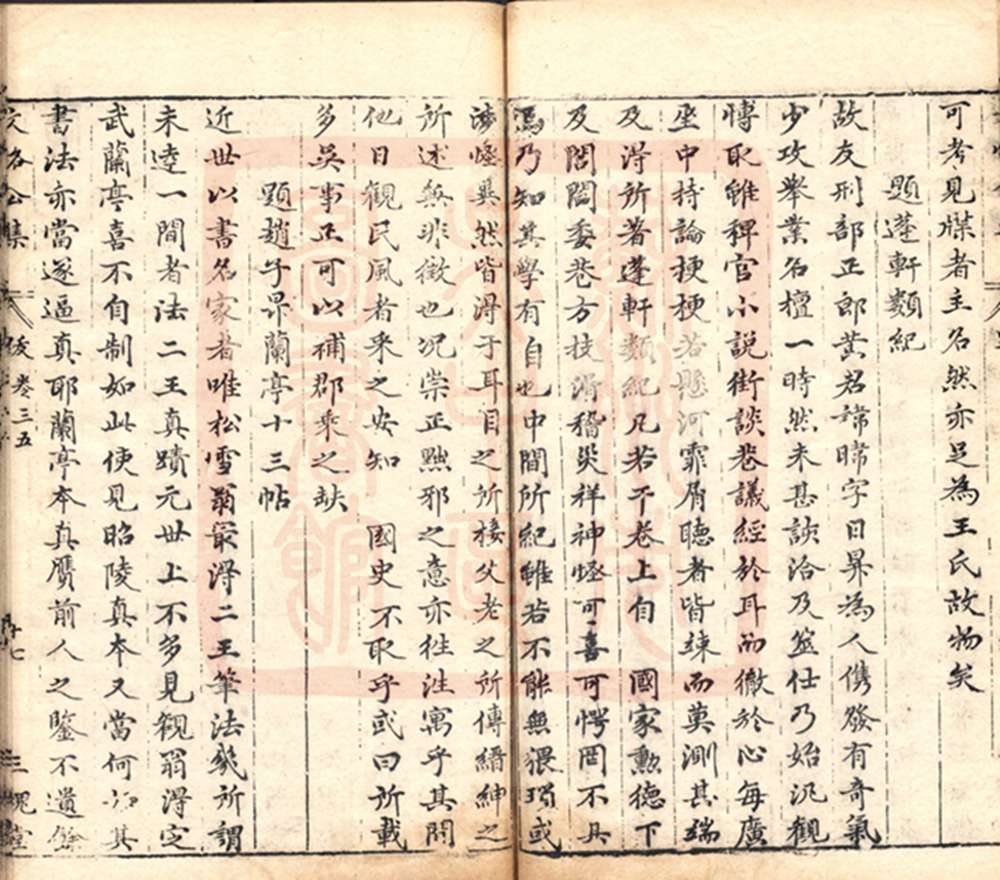 可考見牒者主名然亦足為王氏故物矣
題蓬軒類紀
故友刑部正郎黄君諱暐字日昇為人儁發有奇氣
少攻舉業名擅一時然未甚該洽及筮仕乃始汎觀
博取雖稗官小説街談巷議經於耳而徹於心每廣
坐中持論梗梗若懸河霏屑聽者皆竦而莫測其端
及淂所著蓬軒類紀凡若干卷上自 國家勲德下
及閭閻委巷方技滑稽災祥神恠可喜可愕罔不具
焉乃知其學有自也中間所紀雖若不能無猥瑣或
渉恠異然皆淂于耳目之所接父老之所傳縉紳之
所述無非徴也况崇正黜邪之意亦徃徃寓乎其間
他日觀民風者采之安知 國史不取乎或曰所載
多吳事正可以補郡乗之缺
題趙子昻蘭亭十三帖
近世以書名家者唯松雪翁最淂二王筆法幾所謂
未逹一間者法二王真蹟元世上不多見觀翁淂定
武蘭亭喜不自制如此使見昭陵真本又當何如其
書法亦當遂逼真耶蘭亭本真贋前人之鑒不遺餘
文恪公集
卷三五